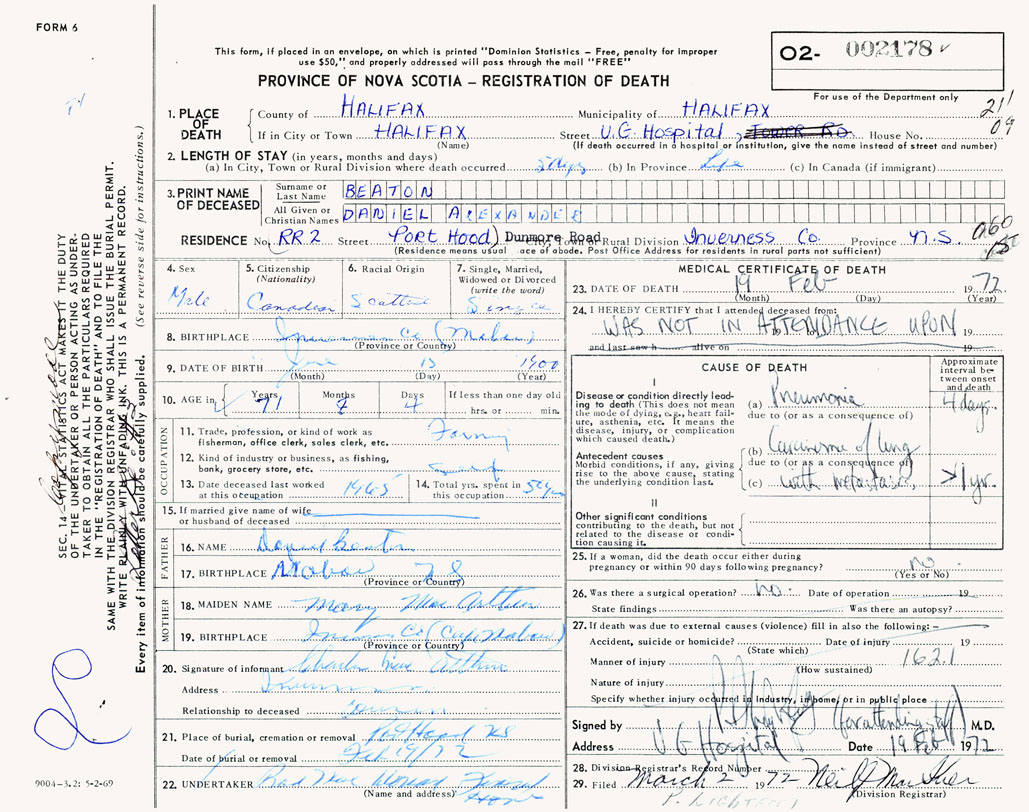 FORM 6
This form, if placed in an envelope, on which is printed "Dominion Statistics – Free, penalty for improper
use $50," and properly addressed will pass through the mail "FREE"
PROVINCE OF NOVA SCOTIA – REGISTRATION OF DEATH
02- 002178
For use of the Department only
211
09
1. PLACE OF DEATH
County of HALIFAX Municipality of HALIFAX
If in City or Town HALIFAX Street V.G. Hospital, Tower Rd. House No.
(Name) (If death occurred in a hospital or institution, give the name instead of street and number)
2. LENGTH OF STAY (in years, months and days)
(a) In City, Town or Rural Division where death occurred (b) In Province Life (c) In Canada (if immigrant)
3. PRINT NAME OF DECEASED
Surname or Last Name BEATON
All Given or Christian Names DANIEL ALEXANDER
RESIDENCE No. RR2 Street Port Hood) Dunmore Road Rural Division Inverness Co. Province N.S.
060
(Residence means usual ace of abode. Post Office Address for residents in rural parts not sufficient)
4. Sex
Male
5. Citizenship
(Nationality)
Canadian
6. Racial Origin
Scottish
7. Single, Married,
Widowed or Divorced
(write the word)
Single
8. BIRTHPLACE Inverness Co (Mabou)
(Province or Country)
9. DATE OF BIRTH June 15 1900
(Month) (Day) (Year)
10. AGE in Years 71 Months Days 4 If less than one day old
hrs. or min.
OCCUPATION
11. Trade, profession, or kind of work as
fisherman, office clerk, sales clerk, etc. Farming
12. Kind of industry or business, as fishing,
bank, grocery store, etc.
13. Date deceased last worked
at this occupation 1965
14. Total yrs. spent in
this occupation
15. If married give name of wife
or husband of deceased
FATHER
16. NAME Beaton
17. BIRTHPLACE Mabou N S
(Province or Country)
MOTHER
18. MAIDEN NAME Mary Mac Arthur
19. BIRTHPLACE Co (Cape Mabou)
(Province or Country)
20. Signature of informant Charles Mac Arthur
Address
Relationship to deceased
21. Place of burial, cremation or removal Port Hood NS
Date of burial or removal Feb 19/72
22. UNDERTAKER
(Name and address)
MEDICAL CERTIFICATE OF DEATH
23. DATE OF DEATH 19 Feb 1972
(Month) (Day) (Year)
24. I HEREBY CERTIFY that I attended deceased from:
WAS NOT IN ATTENDANCE UPON 19
and last saw h alive on 19
CAUSE OF DEATH
Approximate
interval be-
tween onset
and death
I
Disease or condition directly lead-
ing to death (This does not mean
the mode of dying, e.g., heart fail-
ure, asthenia, etc. It means the
disease, injury, or complication
which caused death.)
(a) Pneumonia 4 days.
due to (or as a consequence of)
Antecedent causes
Morbid conditions, if any, giving
rise to the above cause, stating
the underlying condition last.
(b) Carcinoma of lung
due to (or as a consequence of)
(c) with metastases >1 yr.
II
Other significant conditions
contributing to the death, but not
related to the disease or condi-
tion causing it.
25. If a woman, did the death occur either during
pregnancy or within 90 days following pregnancy? no
(Yes or No)
26. Was there a surgical operation? no. Date of operation 19
State findings Was there an autopsy?
27. If death was due to external causes (violence) fill in also the following: –
Accident, suicide or homicide? Date of injury 19
(State which)
Manner of injury 162.1
(How sustained)
Nature of injury
Specify whether injury occurred in industry, in home, or in public place
Signed by (for attending staff) M.D.
Address V G Hospital Date 19 Feb 1972
28. Division Registrar's Record Number
29. Filed March 2 1972
(Division Registrar)
SEC. 14 – VITAL STATISTICS ACT MAKES IT THE DUTY
OF THE UNDERTAKER OR PERSON ACTING AS UNDER-
TAKER TO OBTAIN ALL THE PARTICULARS REQUIRED
IN THE "REGISTRATION OF DEATH" AND TO FILE THE
SAME WITH THE DIVISION REGISTRAR WHO SHALL ISSUE THE BURIAL PERMIT.
WRITE PLAINLY WITH UNFADING INK. THIS IS A PERMANENT RECORD.
Every item of information should be carefully supplied. (See reverse side for instructions.)
9004-3.2: 5-2-69